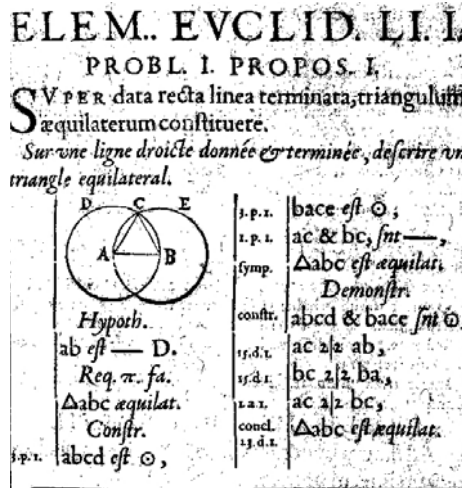 ELEM.. EVCLID. LI. I.
PROBL. I. PROPOS. I.
SVPER data recta linea terminata, triangulum
æquilaterum constituere.
Sur vne ligne droicte donnée & terminée, descrire vn
triangle equilateral.
D C E
A B
Hypoth.
ab est — D.
Req. π. fa.
△abc æquilat.
Constr.
3.p.1. abcd est ⊙,
3.p.1. bace est ⊙,
1.p.1. ac & bc, snt —,
symp. △abc est æquilat.
Demonstr.
constr. abcd & bace snt ⊙
15.d.1. ac 2|2 ab,
15.d.1. bc 2|2 ba,
1.a.1. ac 2|2 bc,
concl. △abc est æquilat.
23.d.1.